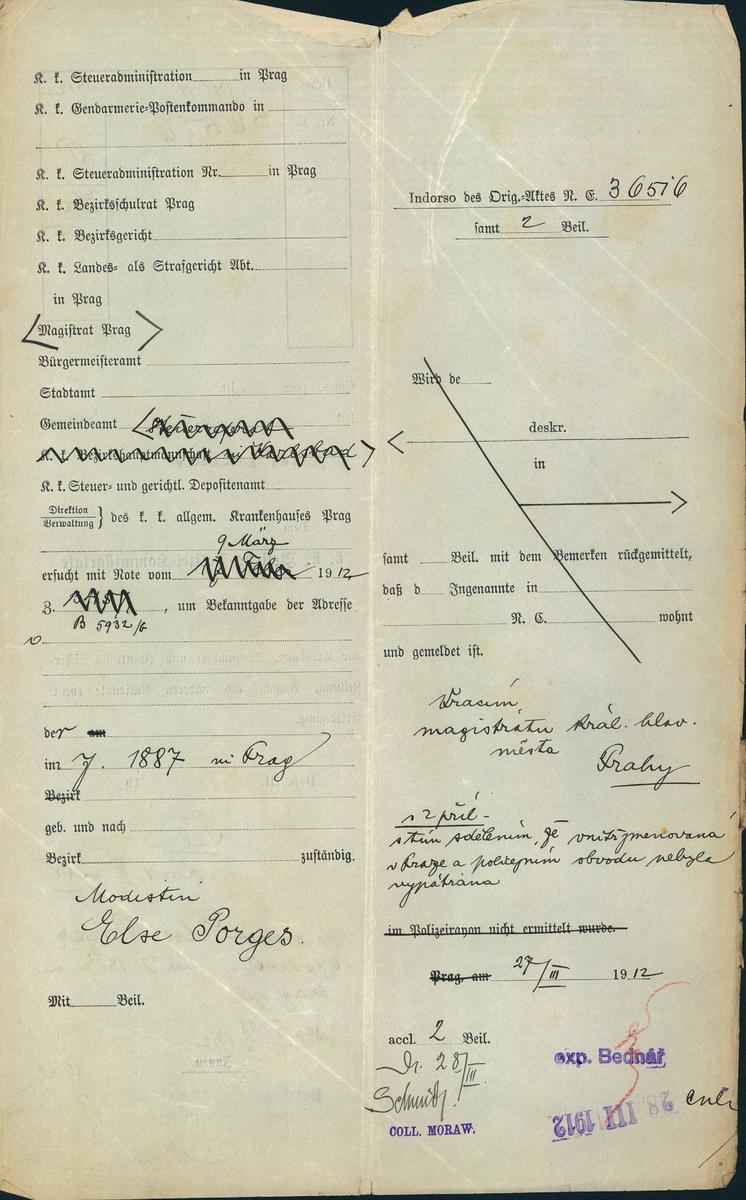 K. k. Steueradministration in Prag
K. k. Gendarmerie-Postenkommando in
K. k. Steueradministration Nr. in Prag
K. k. Bezirksschulrat Prag
K. k. Bezirksgericht
K. k. Landes- als Strafgericht Abt.
in Prag
Magistrat Prag
Bürgermeisteramt
Stadtamt
Gemeindeamt
K. k. Bezirkshauptmannschaft in Karlsbad
K. k. Steuer- und gerichtl. Depositenamt
Direktion
Verwaltung } des k. k. allgem. Krankenhauses Prag
9 März
ersucht mit Note vom 1912
Z. , um Bekanntgabe der Adresse
B 5932/6
der am
im J. 1887 in Prag
Bezirk
geb. und nach
Bezirk zuständig.
Modistin
Else Porges.
Mit Beil.
Indorso des Orig.-Aktes N. E. 36516
samt 2 Beil.
Wird de
deskr.
in
samt Beil. mit dem Bemerken rückgemittelt,
daß d Ingenannte in
N. C. wohnt
und gemeldet ist.
Vracím
magistrátu král. hlav.
města
Prahy
s 2 příl.
s tím sdělením, že vnitřjmenovaná
v Praze a policejním obvodu nebyla
vypátrána
im Polizeirayon nicht ermittelt wurde.
Prag, am 27/III 1912
accl. 2 Beil.
28/III
exp. Bednář
COLL. MORAW.
28 III 1912